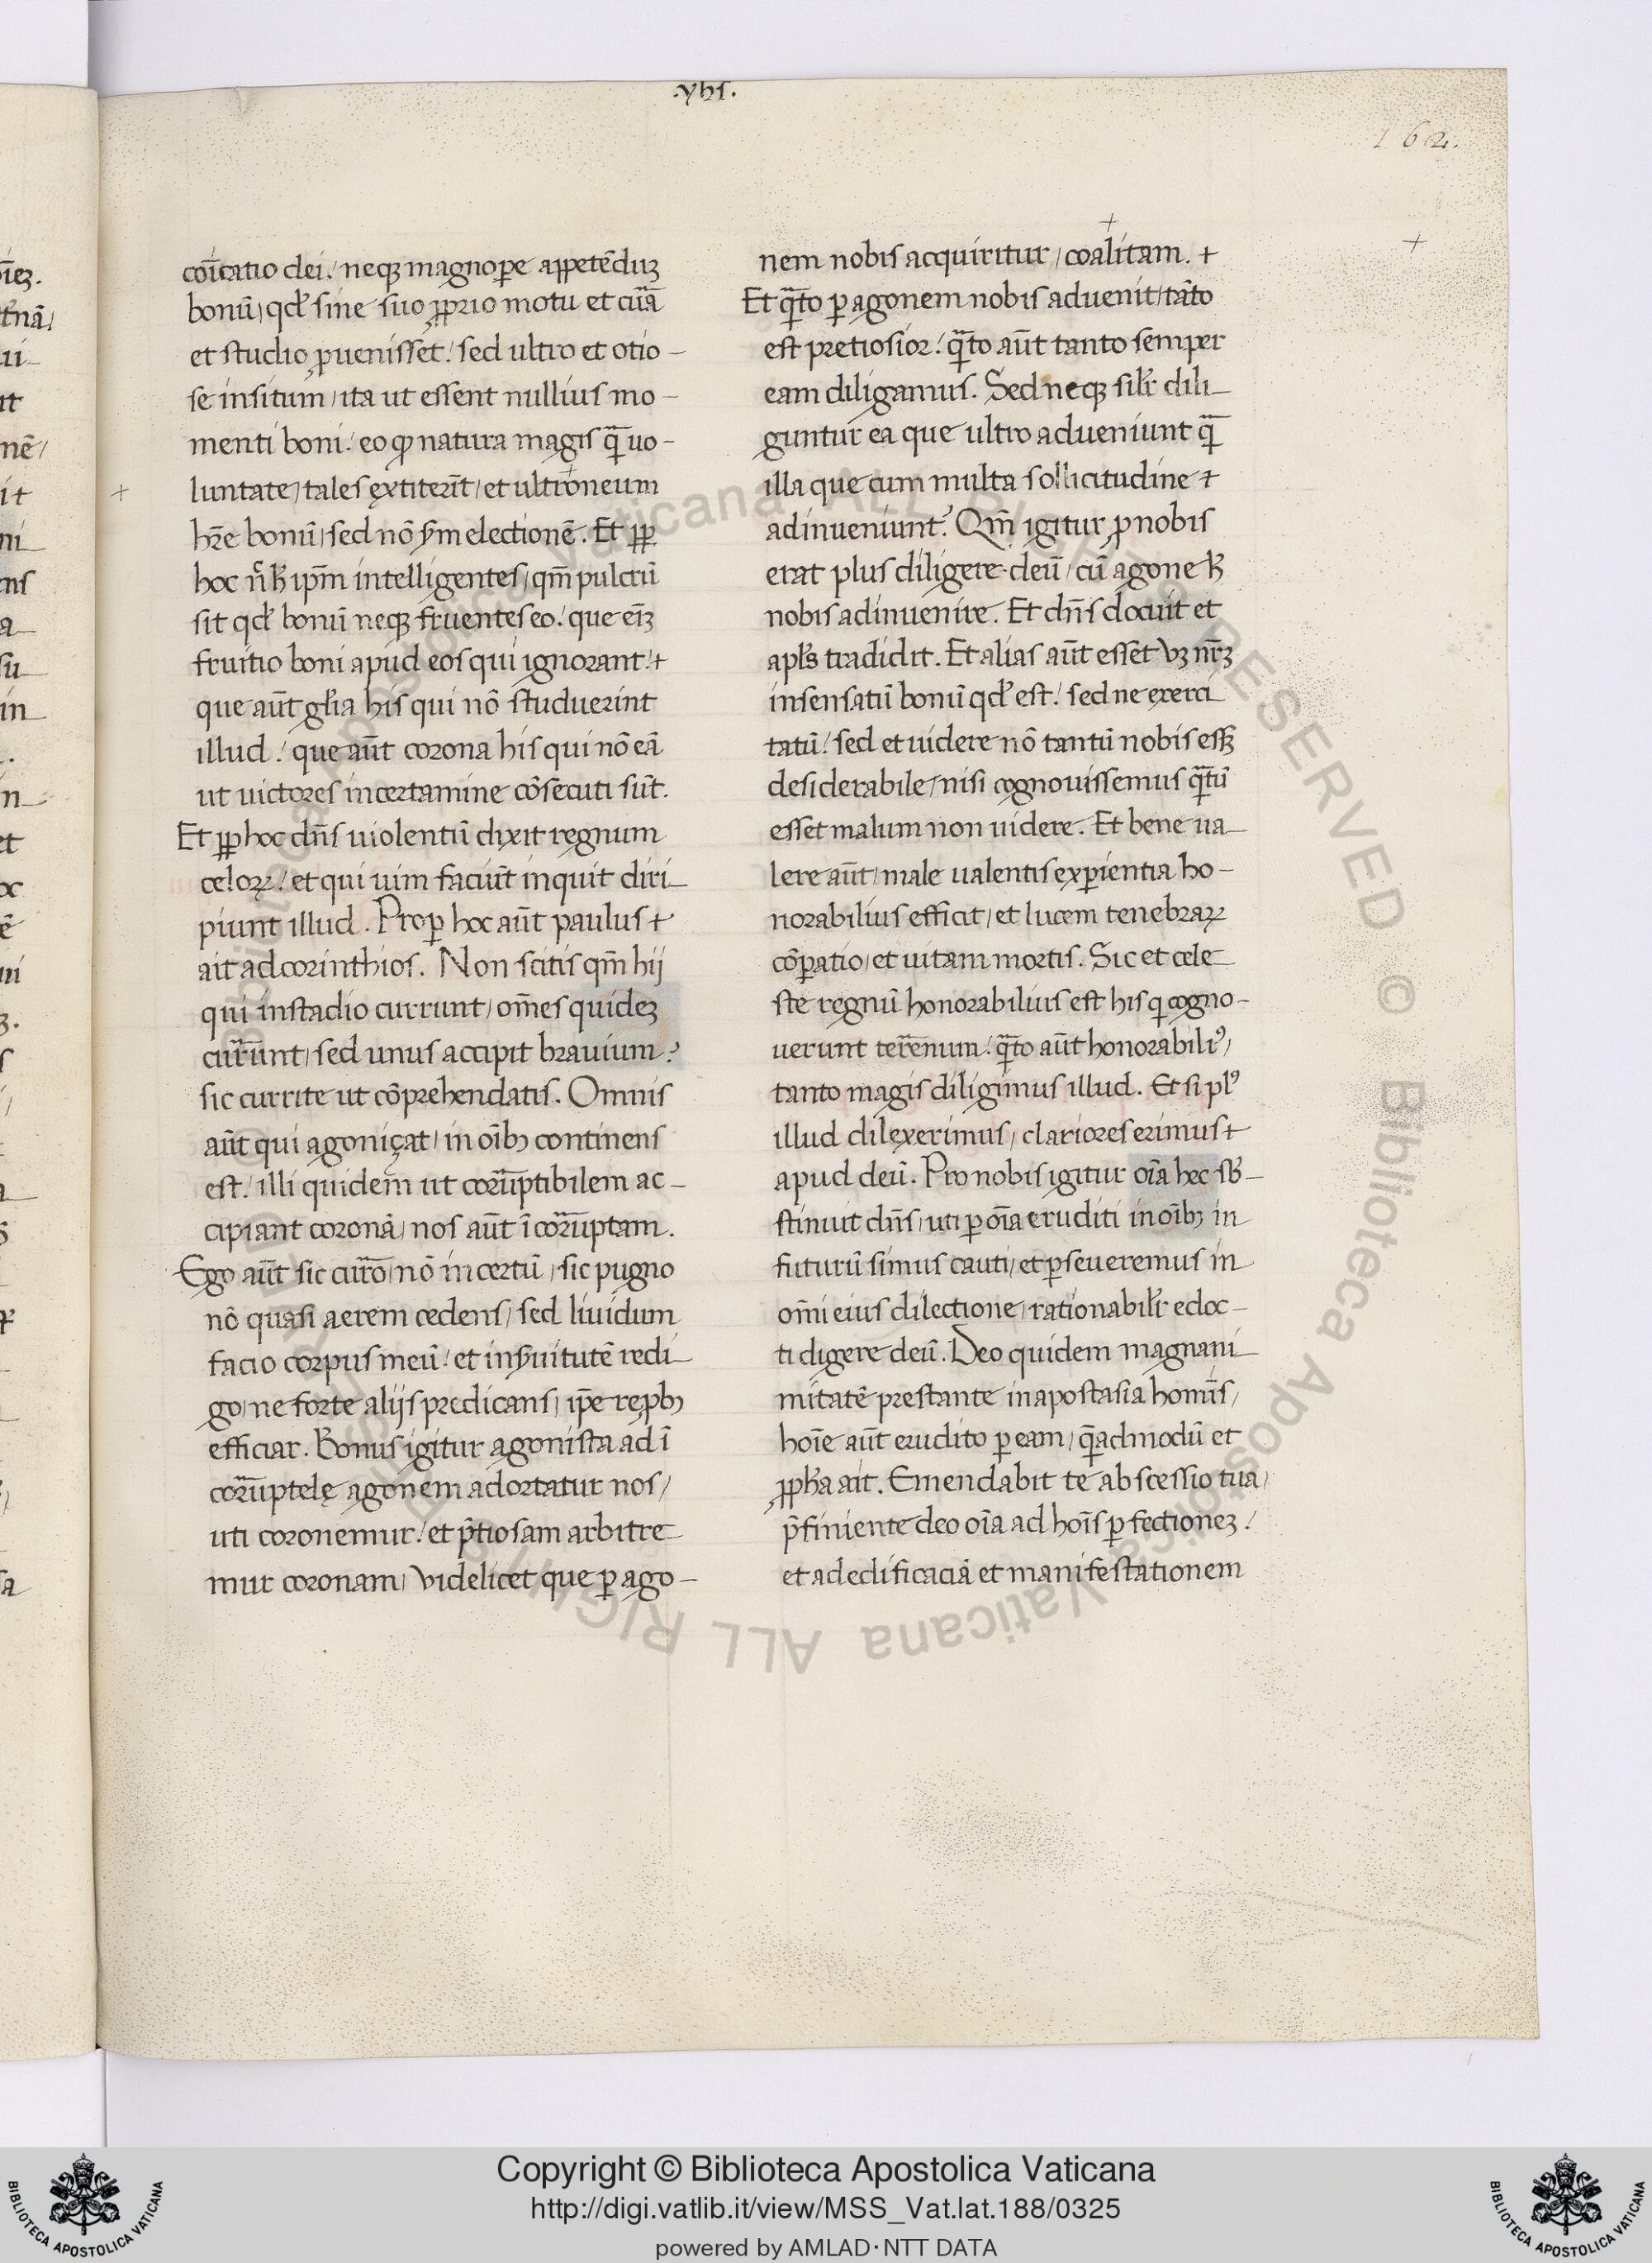 .yhs.
162.
coīcatio dei. neqꝫ magnoꝑe appetēduꝫ
bonū, qđ sine suo ꝓprio motu et cura
et studio ꝓuenisset. sed ultro et otio-
se insitum, ita ut essent nullius mo-
menti boni. eo ꝙ natura magis q̄ uo-
luntate, tales extiterīt, et ultroneum
hr̄e bonū, sed nō ẜm electionē. Et ꝓp̄
hoc n̄ ipm̄ intelligentes, qm̄ pulcrū
sit qđ bonū neqꝫ fruentes eo. que eīꝫ
fruitio boni apud eos qui ignorant. +
que aūt gl̄ia his qui nō studuerint
illud. que aūt corona his qui nō eā
ut uictores in certamine cōsecuti sūt.
Et ꝓp̄ hoc dn̄s uiolentū dixit regnum
celoꝝ. et qui uim faciūt inquit diri-
piunt illud. Prop̄ hoc aūt paulus +
ait ad corinthios. Non scitis qm̄ hij
qui in stadio currunt, om̄es quideꝫ
currunt, sed unus accipit brauium?
sic currite ut cōprehendatis. Omnis
aūt qui agoniçat, in oībꝫ continens
est. illi quidem̄ ut corruptibilem ac-
cipiant coronā, nos aūt īcorruptam.
Ego aūt sic curro, nō in certū, sic pugno
nō quasi aerem cedens, sed liuidum
facio corpus meū. et in ẜuitutē redi-
go, ne forte alijs predicans, ip̄e reꝓbꝫ
efficiar. Bonus igitur agonista ad ī
corruptelę agonem adortatur nos,
uti coronemur. et p̄tiosam arbitre-
mur coronam, videlicet que ꝑ ago-
nem nobis acquiritur, coalitam. +
Et q̄to ꝑ agonem nobis aduenit, tāto
est pretiosior. q̄to aūt tanto semper
eam diligamus. Sed neqꝫ sil̄r dili-
guntur ea que ultro adueniunt q̄
illa que cum multa sollicitudine +
adinueniunt᷑. Qm̄ igitur ꝓ nobis
erat plus diligere deū, cū agone
nobis adinuenire. Et dn̄s docuit et
apl̄s tradidit. Et alias aūt essēt vꝫ nr̄ꝫ
insensatū bonū qđ est. sed ne exerci-
tatū. sed et uidere nō tantū nobis ess̄ꝫ
desiderabile, nisi cognouissemus q̄tū
esset malum non uidere. Et bene ua-
lere aūt, male ualentis exꝑientia ho-
norabilius efficit, et lucem tenebraꝝ
cōꝑatio, et uitam mortis. Sic et cele-
ste regnū honorabilius est his q̇ cogno-
uerunt terrenum. q̄to aūt honorabiliꝰ,
tanto magis diligimus illud. Et si plꝰ
illud dilexerimus, clariores erimus +
apud deū. Pro nobis igitur oīa hec sƀ-
stinuit dn̄s, uti ꝑ oīa eruditi in oībꝫ in
futurū simus cauti, et ꝑseueremus in
om̄i eius dilectione, rationabil̄r edoc-
ti digere deū. Deo quidem magnani-
mitatē prestante in apostasia homīs,
hoīe aūt erudito ꝑ eam, q̄admodū et
ꝓph̄a ait. Emendabit te abscessio tua,
p̄finiente deo oīa ad hoīs ꝑfectioneꝫ.
et ad edificaciā et manifestationem
Copyright © Biblioteca Apostolica Vaticana
http://digi.vatlib.it/view/MSS_Vat.lat.188/0325
powered by AMLAD·NTT DATA